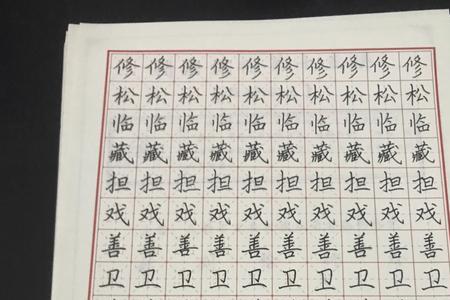 修修修修修修修修修修
松松松松松松松松松松
临临临临临临临临临临
藏藏藏藏藏藏藏藏藏藏
担担担担担担担担担担
戏戏戏戏戏戏戏戏戏戏
善善善善善善善善善善
卫卫卫卫卫卫卫卫卫卫